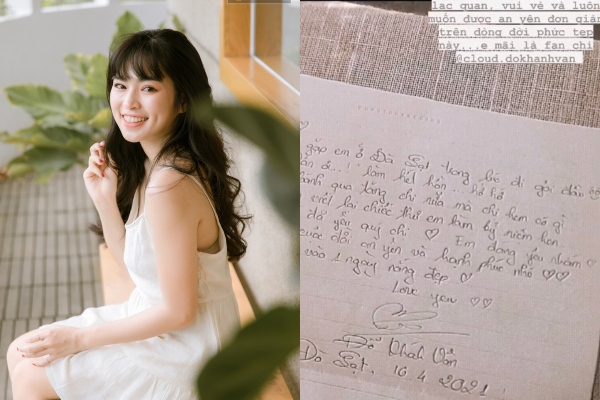 lạc quan, vui vẻ và luôn
muốn được an yên đơn giản
trên dòng đời phức tạp
này...e mãi là fan chị
@cloud.dokhanhvan
gặp em ở Đà Lạt trong lúc đi gội đầu
ở...! làm hết hồn... hồ hồ
qua tặng chị nữa mà chị hem có gì
viết lại chiếc thư em làm kỷ niệm hen.
đã yêu quý chị ♡ Em đáng yêu nhắm ♡
cuộc đời an yên và hạnh phúc nhé ♡♡
vào 1 ngày nắng đẹp ♡
Love you ♡♡
Đỗ Khánh Vân
Đà Lạt, 16 4 2021